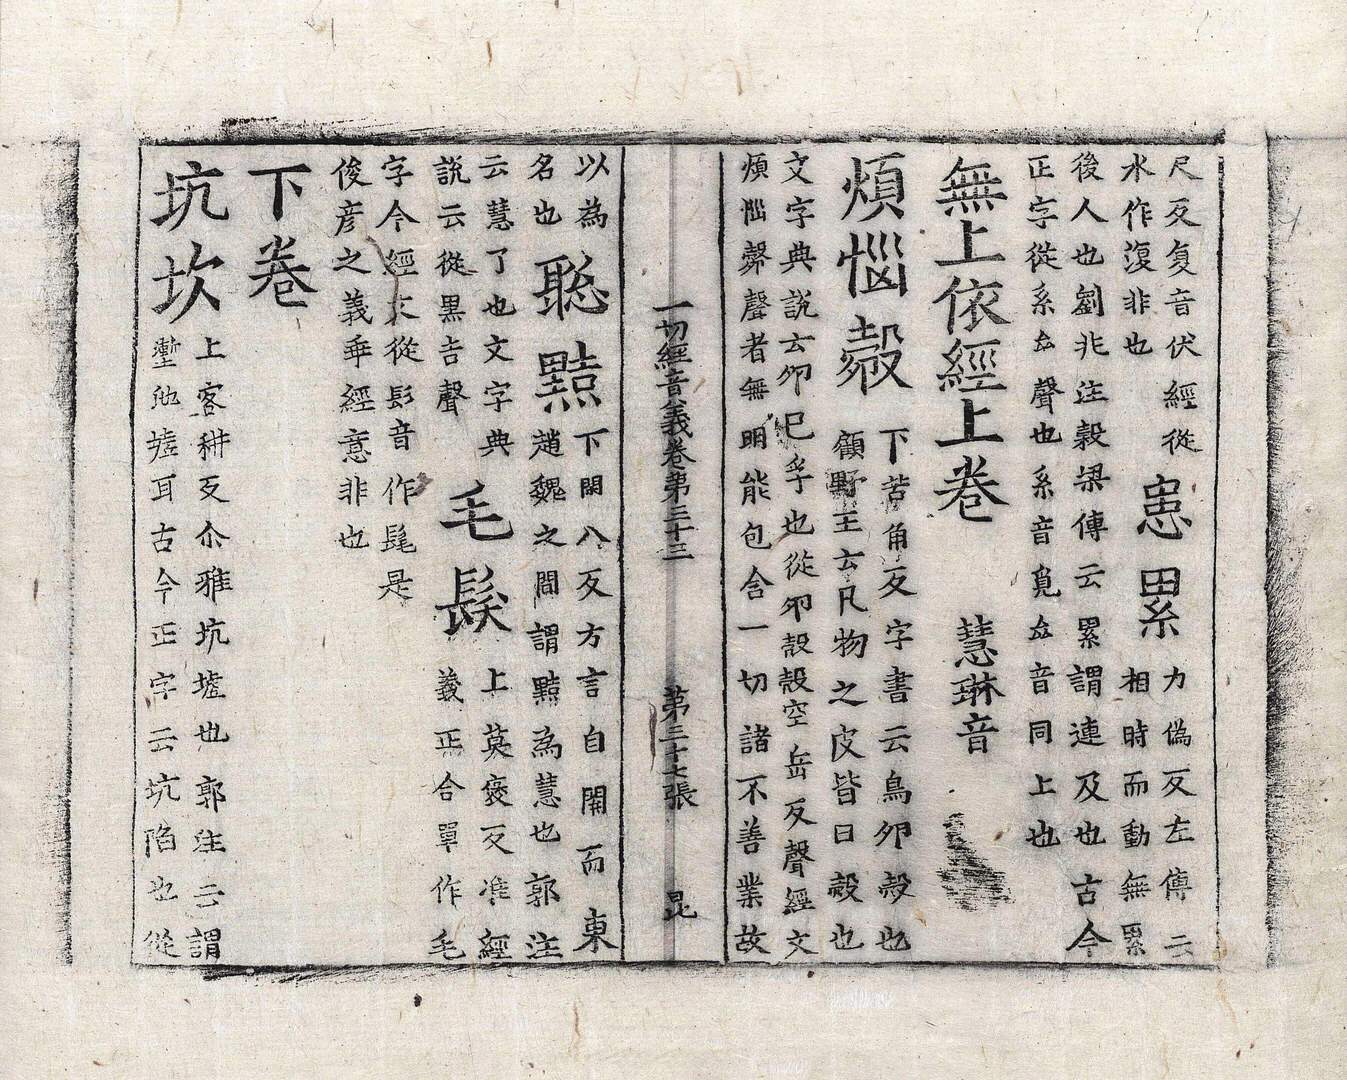 尺反复音伏經從
水作澓非也
恚累
力偽反左傳云
相時而動無累
後人也劉兆注穀梁傳云累謂連及也古今
正字從糸厽聲也糸音覓厽音同上也
無上依經上卷
慧琳音
煩惱㲉
下苦角反字書云鳥卵㲉也
顧野王云凡物之皮皆曰㲉也
文字典說云卵已孚也從卵㱿㱿空岳反聲經文
煩惱㲉聲者無明能包含一切諸不善業故
一切經音義卷第三十三 第三十七張 昆
以為
名也
聦黠
下閑八反方言自關而東
趙魏之間謂黠為慧也郭注
云慧了也文字典
說云從黑吉聲
毛髮
上莫褒反准經
義正合單作毛
字今經文從髟音作髦是
俊彥之義乖經意非也
下卷
坑坎
上客耕反尒雅坑墟也郭注云謂
壍池墟耳古今正字云坑陷也從